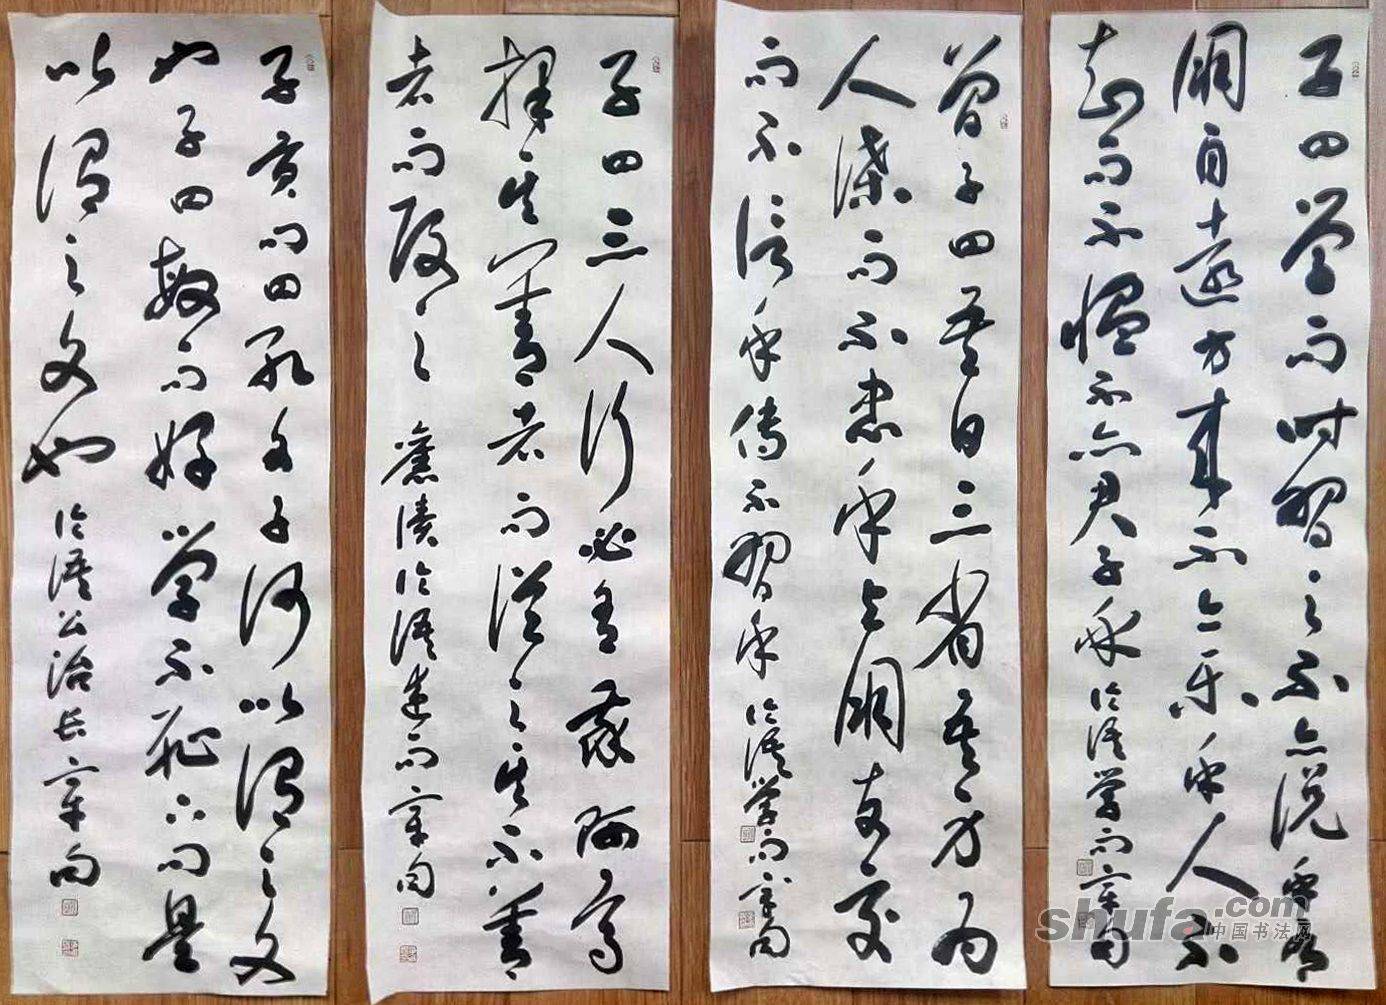 子曰学而时習之不亦說乎有
朋自遠方来不亦乐乎人不
知而不愠不亦君子乎 论语学而章句
曾子曰吾日三省吾身为
人谋而不忠乎与朋友交
而不信乎傳不習乎 论语学而章句
子曰三人行必有我师焉
择其善者而從之其不善
者而改之 舊读论语述而章句
子贡问曰孔文子何以谓之文
也子曰敏而好学不耻下问是
以谓之文也 论语公冶长章句
shufa.com
中国书法网